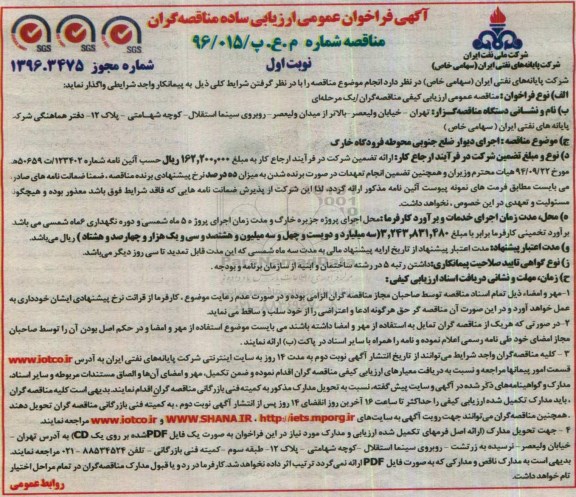 آگهی فراخوان عمومی ارزیابی ساده مناقصه‌گران
مناقصه شماره م.ع.پ/۹۶/۰۱۵
نوبت اول
شماره مجوز ۱۳۹۶.۳۴۷۵
SGS SGS SGS
شرکت ملی نفت ایران
شرکت پایانه‌های نفتی ایران (سهامی خاص)
شرکت پایانه‌های نفتی ایران (سهامی خاص) در نظر دارد انجام موضوع مناقصه را با در نظر گرفتن شرایط کلی ذیل به پیمانکار واجد شرایطی واگذار نماید:
الف) نوع فراخوان: مناقصه عمومی ارزیابی کیفی مناقصه‌گران/یک مرحله‌ای
ب) نام و نشانی دستگاه مناقصه‌گزار: تهران - خیابان ولیعصر- بالاتر از میدان ولیعصر- روبروی سینما استقلال- کوچه شهامتی - پلاک ۱۲- دفتر هماهنگی شرکت
پایانه های نفتی ایران (سهامی خاص)
ج) موضوع مناقصه: اجرای دیوار ضلع جنوبی محوطه فرودگاه خارگ
د) نوع و مبلغ تضمین شرکت در فرآیند ارجاع کار: ارائه تضمین شرکت در فرآیند ارجاع کار به مبلغ ۱۶۲,۲۰۰,۰۰۰ ریال حسب آئین نامه شماره ۱۲۳۴۰۲/ت۵۰۶۵۹ه
مورخ ۹۴/۰۹/۲۲ هیات محترم وزیران و همچنین تضمین انجام تعهدات در صورت برنده شدن به میزان ده درصد نرخ پیشنهادی برنده مناقصه، ضمنا ضمانت نامه های صادره
می بایست مطابق فرمت های نمونه پیوست آئین نامه مذکور ارائه گردد، لذا این شرکت از پذیرش ضمانت نامه هایی که فاقد شرایط فوق باشد معذور بوده و هیچگونه
مسئولیت و تعهدی در این خصوص، نخواهد داشت.
ه) محل، مدت زمان اجرای خدمات و برآورد کارفرما: محل اجرای پروژه جزیره خارگ و مدت زمان اجرای پروژه ۵ ماه شمسی و دوره نگهداری ۶ ماه شمسی می باشد
برآورد تخمینی کارفرما برابر با مبلغ ۳,۲۴۳,۸۳۱,۴۸۰ (سه میلیارد و دویست و چهل و سه میلیون و هشتصد و سی و یک هزار و چهارصد و هشتاد) ریال می‌باشد.
و) مدت اعتبار پیشنهاد: مدت اعتبار پیشنهاد از تاریخ ارایه پیشنهاد مالی به مدت سه ماه شمسی که این مدت قابل تمدید تا سی روز دیگر می‌باشد.
ز) نوع گواهی تایید صلاحیت پیمانکاری: داشتن رتبه ۵ در رشته ساختمان و ابنیه از سازمان برنامه و بودجه.
ح) زمان، مهلت و نشانی دریافت اسناد ارزیابی کیفی:
۱- مهر و امضاء ذیل تمام اسناد مناقصه توسط صاحبان مجاز مناقصه گران الزامی بوده و در صورت عدم رعایت موضوع، کارفرما از قرائت نرخ پیشنهادی ایشان خودداری به
عمل خواهد آورد و در این صورت آن مناقصه گر حق هرگونه ادعا و اعتراضی را از خود سلب و ساقط می نماید.
۲- در صورتی که هریک از مناقصه گران تمایل به استفاده از مهر و امضا داشته باشند می بایست موضوع استفاده از مهر و امضا و در حکم اصل بودن آن را توسط صاحبان
مجاز امضای خود طی نامه رسمی اعلام نموده و نامه را همراه با سایر اسناد در پاکت (ب) ارائه نمایند.
۳- کلیه مناقصه‌گران واجد شرایط می‌توانند از تاریخ انتشار آگهی نوبت دوم به مدت ۱۴ روز به سایت اینترنتی شرکت پایانه‌های نفتی ایران به آدرس www.iotco.ir
قسمت امور پیمانها مراجعه و نسبت به دریافت معیارهای ارزیابی کیفی مناقصه‌گران اقدام نموده و ضمن تکمیل، مهر و امضای آن‌ها و الصاق مستندات مربوطه و سایر اسناد،
مدارک و گواهینامه‌های ذکر شده در آگهی و سایت پیش گفته، نسبت به تحویل مدارک مذکور به کمیته فنی بازرگانی مناقصه گران اقدام نمایند. بدیهی است کلیه مناقصه گران
باید مدارک تکمیل شده ارزیابی کیفی را حداکثر تا ساعت ۱۶ آخرین روز انقضای ۱۴ روز پس از انتشار آگهی نوبت دوم، به کمیته فنی بازرگانی مناقصه گران تحویل دهند
، همچنین مناقصه‌گران می‌توانند جهت رویت آگهی به سایت‌های http://iets.mporg.ir ، WWW.SHANA.IR و www.iotco.ir مراجعه نمایند.
۴- جهت تحویل مدارک (ارائه اصل فرمهای تکمیل شده ارزیابی و مدارک مورد نیاز در این فراخوان به صورت یک فایل PDF شده بر روی یک CD) به آدرس تهران -
خیابان ولیعصر- نرسیده به زرتشت - روبروی سینما استقلال - کوچه شهامتی - پلاک ۱۲- طبقه سوم - کمیته فنی بازرگانی - تلفن ۸۸۵۳۴۵۲۴-۰۲۱ مراجعه نمایند.
بدیهی است به مدارک ناقص و مدارکی که به صورت فایل PDF ارائه نمی گردد ترتیب اثر داده نخواهد شد. کارفرما در رد و یا قبول مدارک مناقصه‌گران در تمام مراحل اختیار
تام خواهد داشت.
روابط عمومی